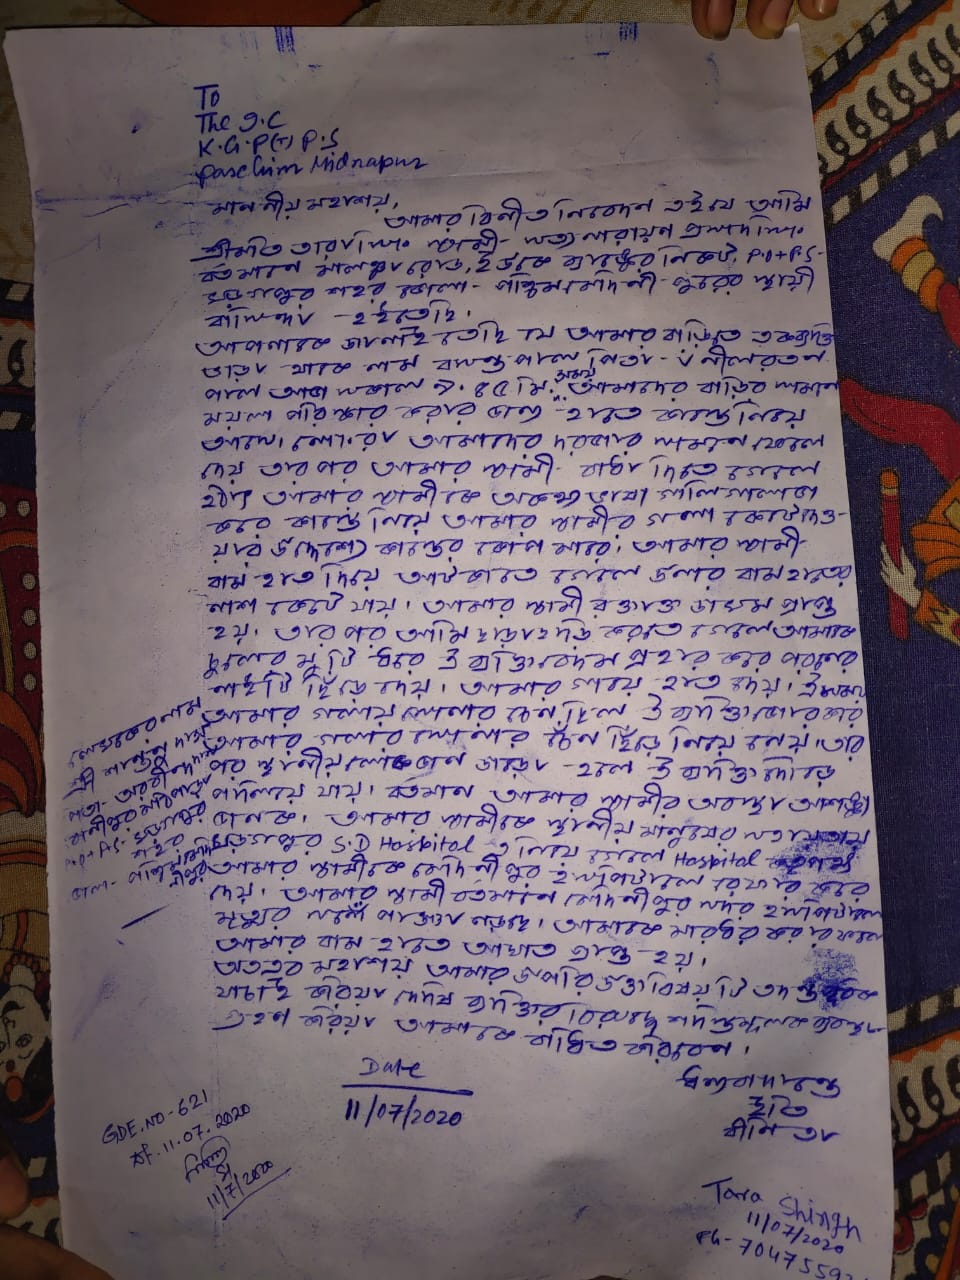 To
The I.C
K.G.P(T) P.S
Paschim Midnapur
মাননীয় মহাশয়,
আমার বিনীত নিবেদন এই যে আমি
শ্রীমতি তারা সিং স্বামী- সত্যনারায়ণ প্রসাদ সিং
বর্তমানে মালঞ্চ রোড, ইউকো ব্যাঙ্কের নিকট, P.O+P.S-
খড়গপুর শহর জেলা- পশ্চিম মেদিনীপুরের স্থায়ী
বাসিন্দা হইতেছি।
আপনাকে জানাইতেছি যে আমার বাড়িতে এক ব্যক্তি
ভাড়া থাকে নাম বসন্ত পাল পিতা- ৺নীলরতন
পাল আজ সকাল ৭.৪৫ মি. সময় আমাদের বাড়ির সামনে
ময়লা পরিষ্কার করার জন্য হাতে কাস্তে নিয়ে
আসে। নোংরা আমাদের দরজার সামনে ফেলে
দেয় তারপর আমার স্বামী বাধা দিতে গেলে
হঠাৎ আমার স্বামীকে অকথ্য ভাষা গালিগালাজ
করে কাস্তে নিয়ে আমার স্বামীর গলা কেটে দেও-
য়ার উদ্দেশ্যে কাস্তের কোপ মারে। আমার স্বামী
বাম হাত দিয়ে আটকাতে গেলে ওনার বাম হাতের
কেটে যায়। আমার স্বামী রক্তাক্ত জখম প্রাপ্ত
হয়। তারপর আমি ছাড়াছাড়ি করতে গেলে আমাকে
চুলের মুঠি ধরে ঐ ব্যক্তি বেদম প্রহার করে পরনের
নাইটি ছিঁড়ে দেয়। আমার গায়ে হাত দেয়। ঐ সময়
আমার গলায় সোনার চেন ছিল ঐ ব্যক্তি জোর করে
আমার গলার সোনার চেন ছিঁড়ে নিয়ে নেয়। তার
পর স্থানীয় লোকজন জড়ো হলে ঐ ব্যক্তি দৌড়ে
পালিয়ে যায়। বর্তমান আমার স্বামীর অবস্থা আশঙ্কা
জনক। আমার স্বামীকে স্থানীয় মানুষের সহায়তায়
খড়গপুর S.D Hospital এ নিয়ে গেলে Hospital
আমার স্বামীকে মেদিনীপুর হাসপাতালে রেফার করে
দেয়। আমার স্বামী বর্তমানে মেদিনীপুর সদর হাসপাতালে
মৃত্যুর সঙ্গে পাঞ্জা লড়ছে। আমাকে মারধর করার ফলে
আমার বাম হাতে আঘাত প্রাপ্ত হয়।
অতএব মহাশয় আমার উপরি উক্ত বিষয়টি তদন্ত
যাচাই করিয়া দোষি ব্যক্তির বিরুদ্ধে শাস্তিমূলক ব্যবস্থা
গ্রহণ করিয়া আমাকে বাধিত করিবেন।
লেখকের নাম
শ্রী শান্তনু দাস
পিতা- অরবিন্দ দাস
P.O+P.S- খড়গপুর
শহর
জেলা- পশ্চিম মেদি
নীপুর
Date
11/07/2020
ধন্যবাদান্তে
ইতি
বিনিতা
GDE.NO-621
dt. 11.07.2020
11/7/2020
Tara Shingh
11/07/2020
Ph- 7047559